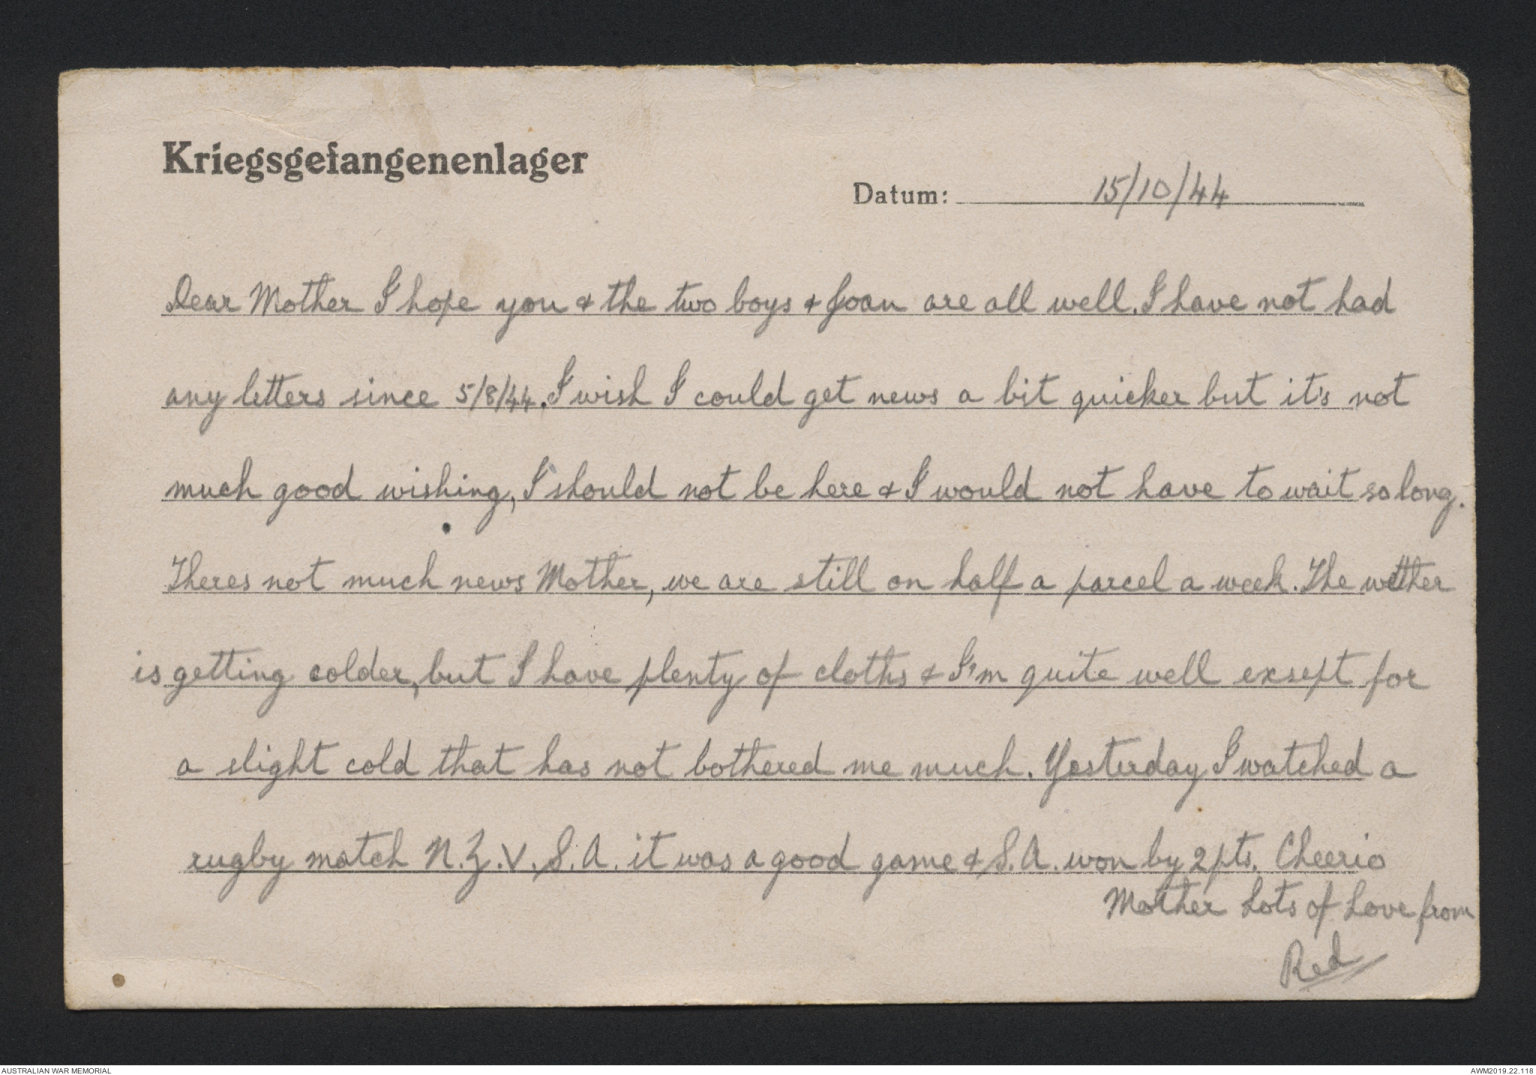 Kriegsgefangenenlager
Datum: 15/10/44
Dear Mother I hope you & the two boys & Joan are all well. I have not had
any letters since 5/8/44. I wish I could get news a bit quicker but it's not
much good wishing, I should not be here & I would not have to wait so long.
Theres not much news Mother, we are still on half a parcel a week. The wether
is getting colder, but I have plenty of cloths & I'm quite well exsept for
a slight cold that has not bothered me much. Yesterday I watched a
rugby match N.Z. V. S.A. it was a good game & S.A. won by 2 pts. Cheerio
Mother Lots of Love from
Red
AUSTRALIAN WAR MEMORIAL
AWM2019.22.118